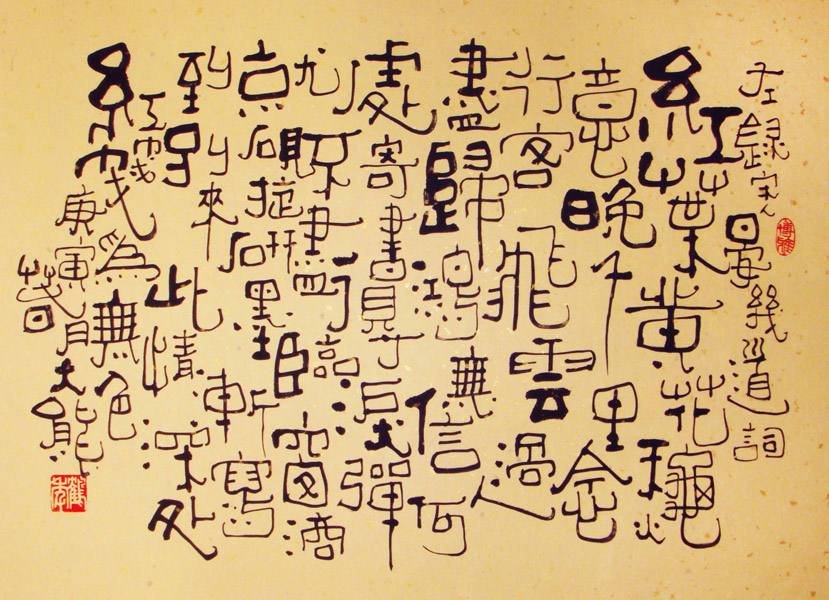 左錄宋人晏幾道詞
紅葉黃花龝
意晚千里念
行客飛雲過
盡歸鴻無信何
處寄書得淚彈
不盡臨窗滴
就硯旋研墨漸寫
到別來此情深处
紅牋為無色
庚寅春月大能